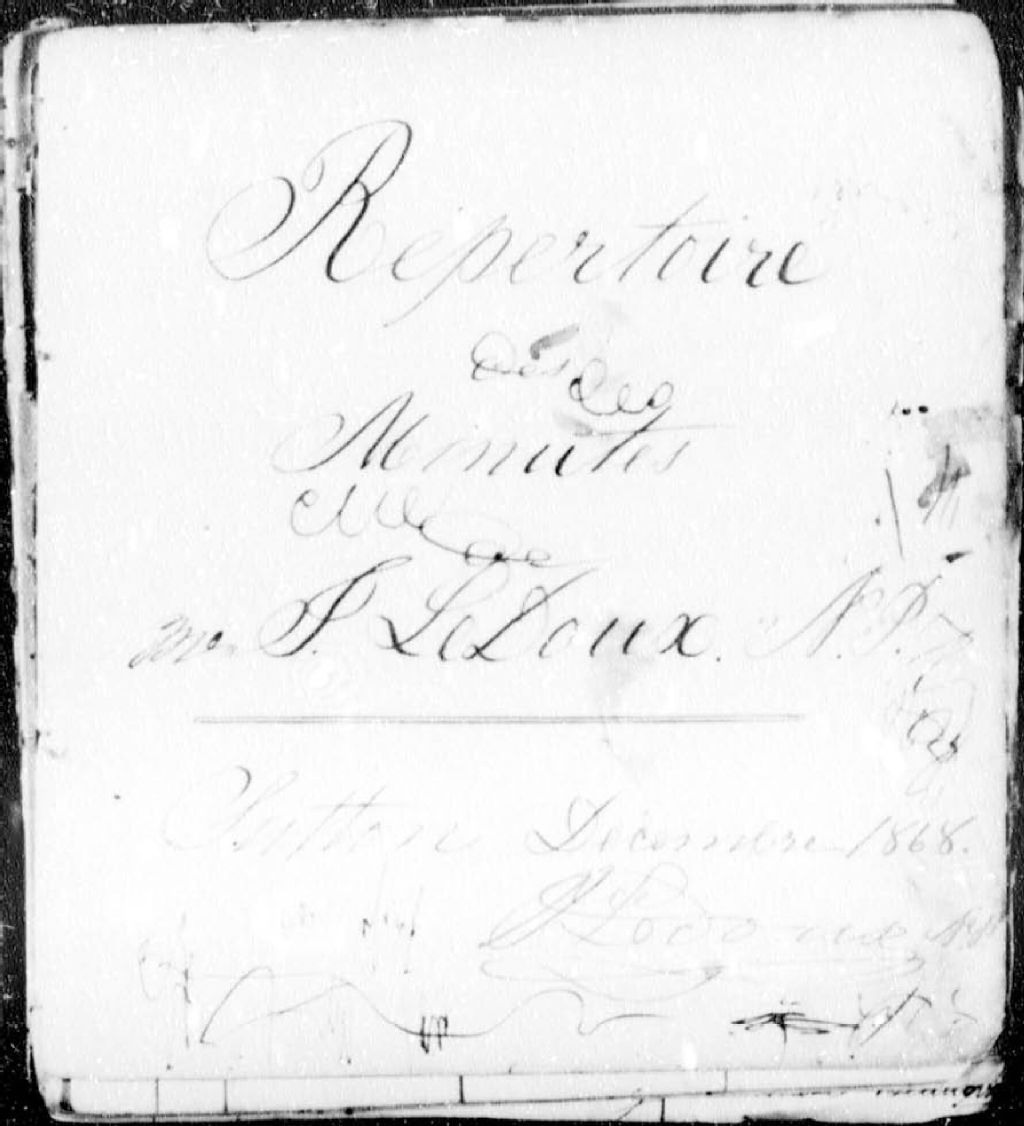 Repertoire
des des
Minutes
de
Mre. J. LeDoux. N.P.
Sutton Décembre 1868.
J LeDoux N.P.